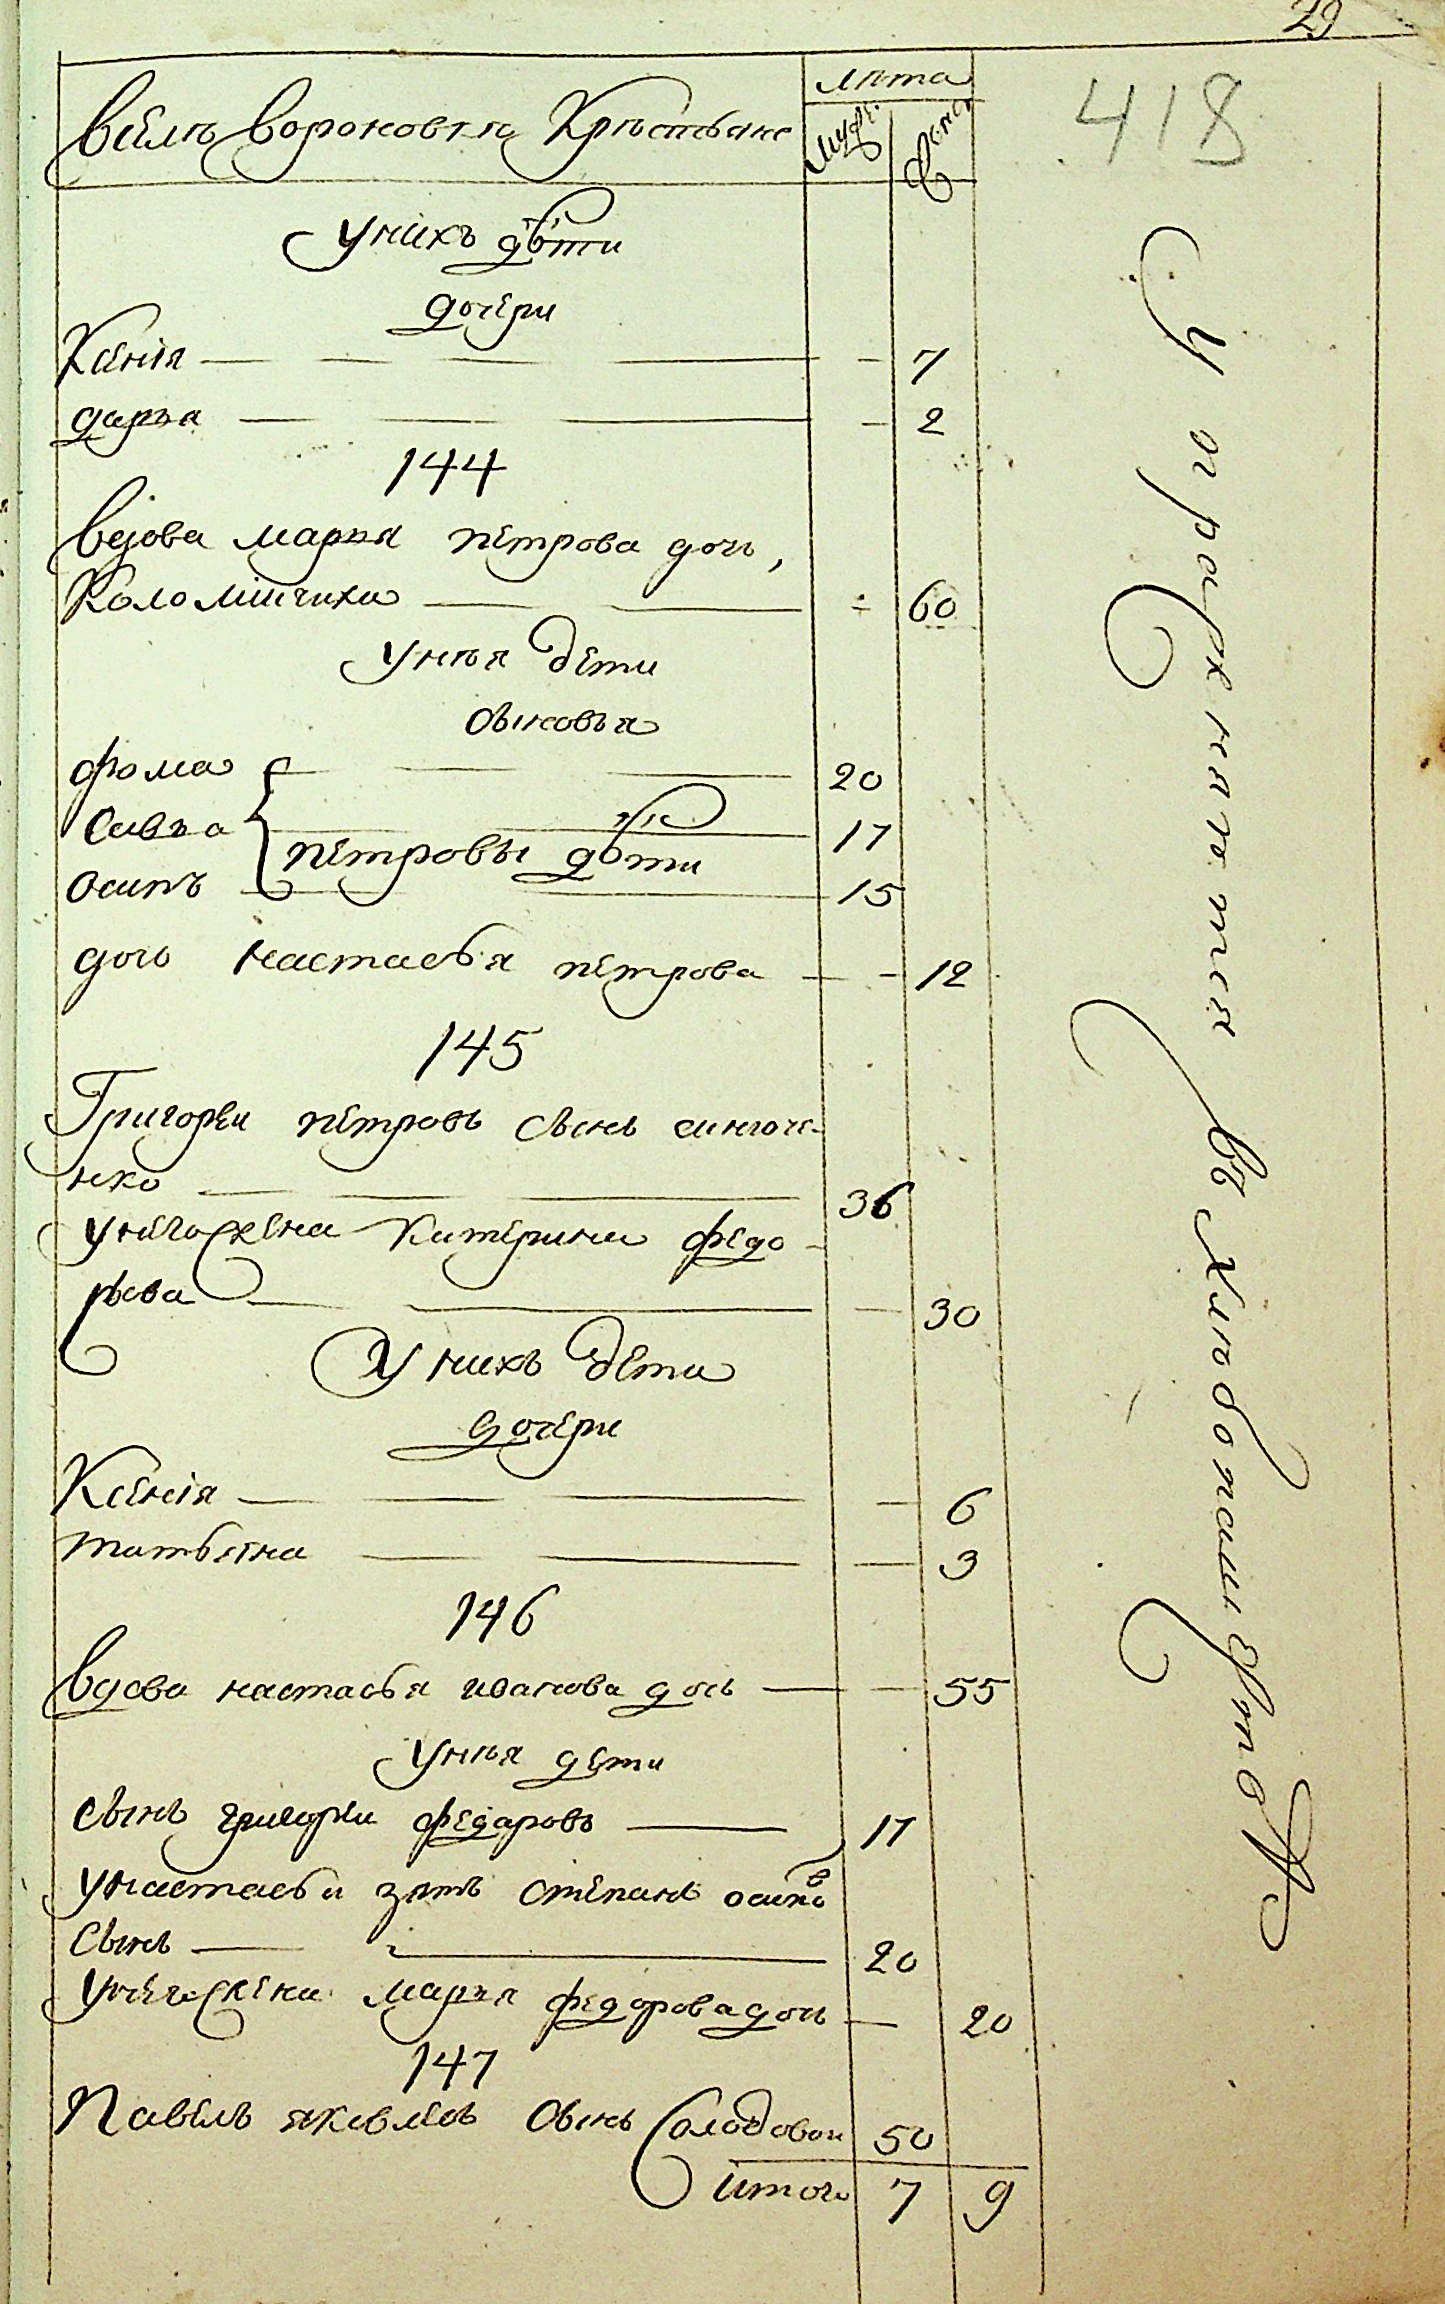 29
418
Вселѣ Вороновкѣ Крѣстьяне
лѣта
муж:
женс:
У нихъ дѣти
дочери
Ксенія 7
дарья 2
144
Вдова марья пѣтрова дочь,
Коломійчиха 60
У нѣя дети
сыновья
фома 20
Савва 17
пѣтровы дѣти
Осипъ 15
дочь настасья пѣтрова 12
145
Григорѣи пѣтровъ сынъ синюче-
нко 36
У него жена Катерина федо-
рова 30
У нихъ дети
дочери
Ксенія 6
татьяна 3
146
Вдова настасья иванова дочь 55
У нѣя дети
сынъ григорѣи федаровъ 17
У настасьи зять степанъ осиповъ
сынъ 20
У него жена марья федорова дочь 20
147
Павелъ яковлевъ сынъ Солодовои 50
итого 7 9